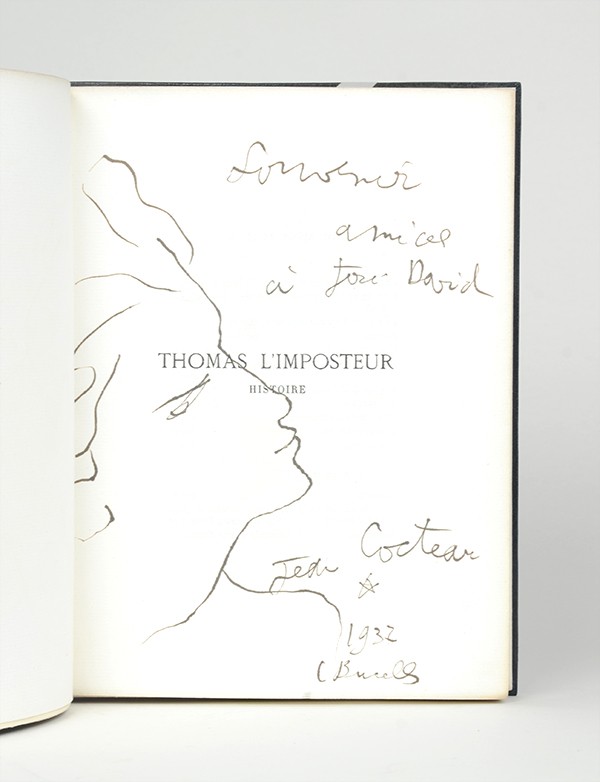 Souvenir
amical
à José David
THOMAS L'IMPOSTEUR
HISTOIRE
Jean Cocteau
1932